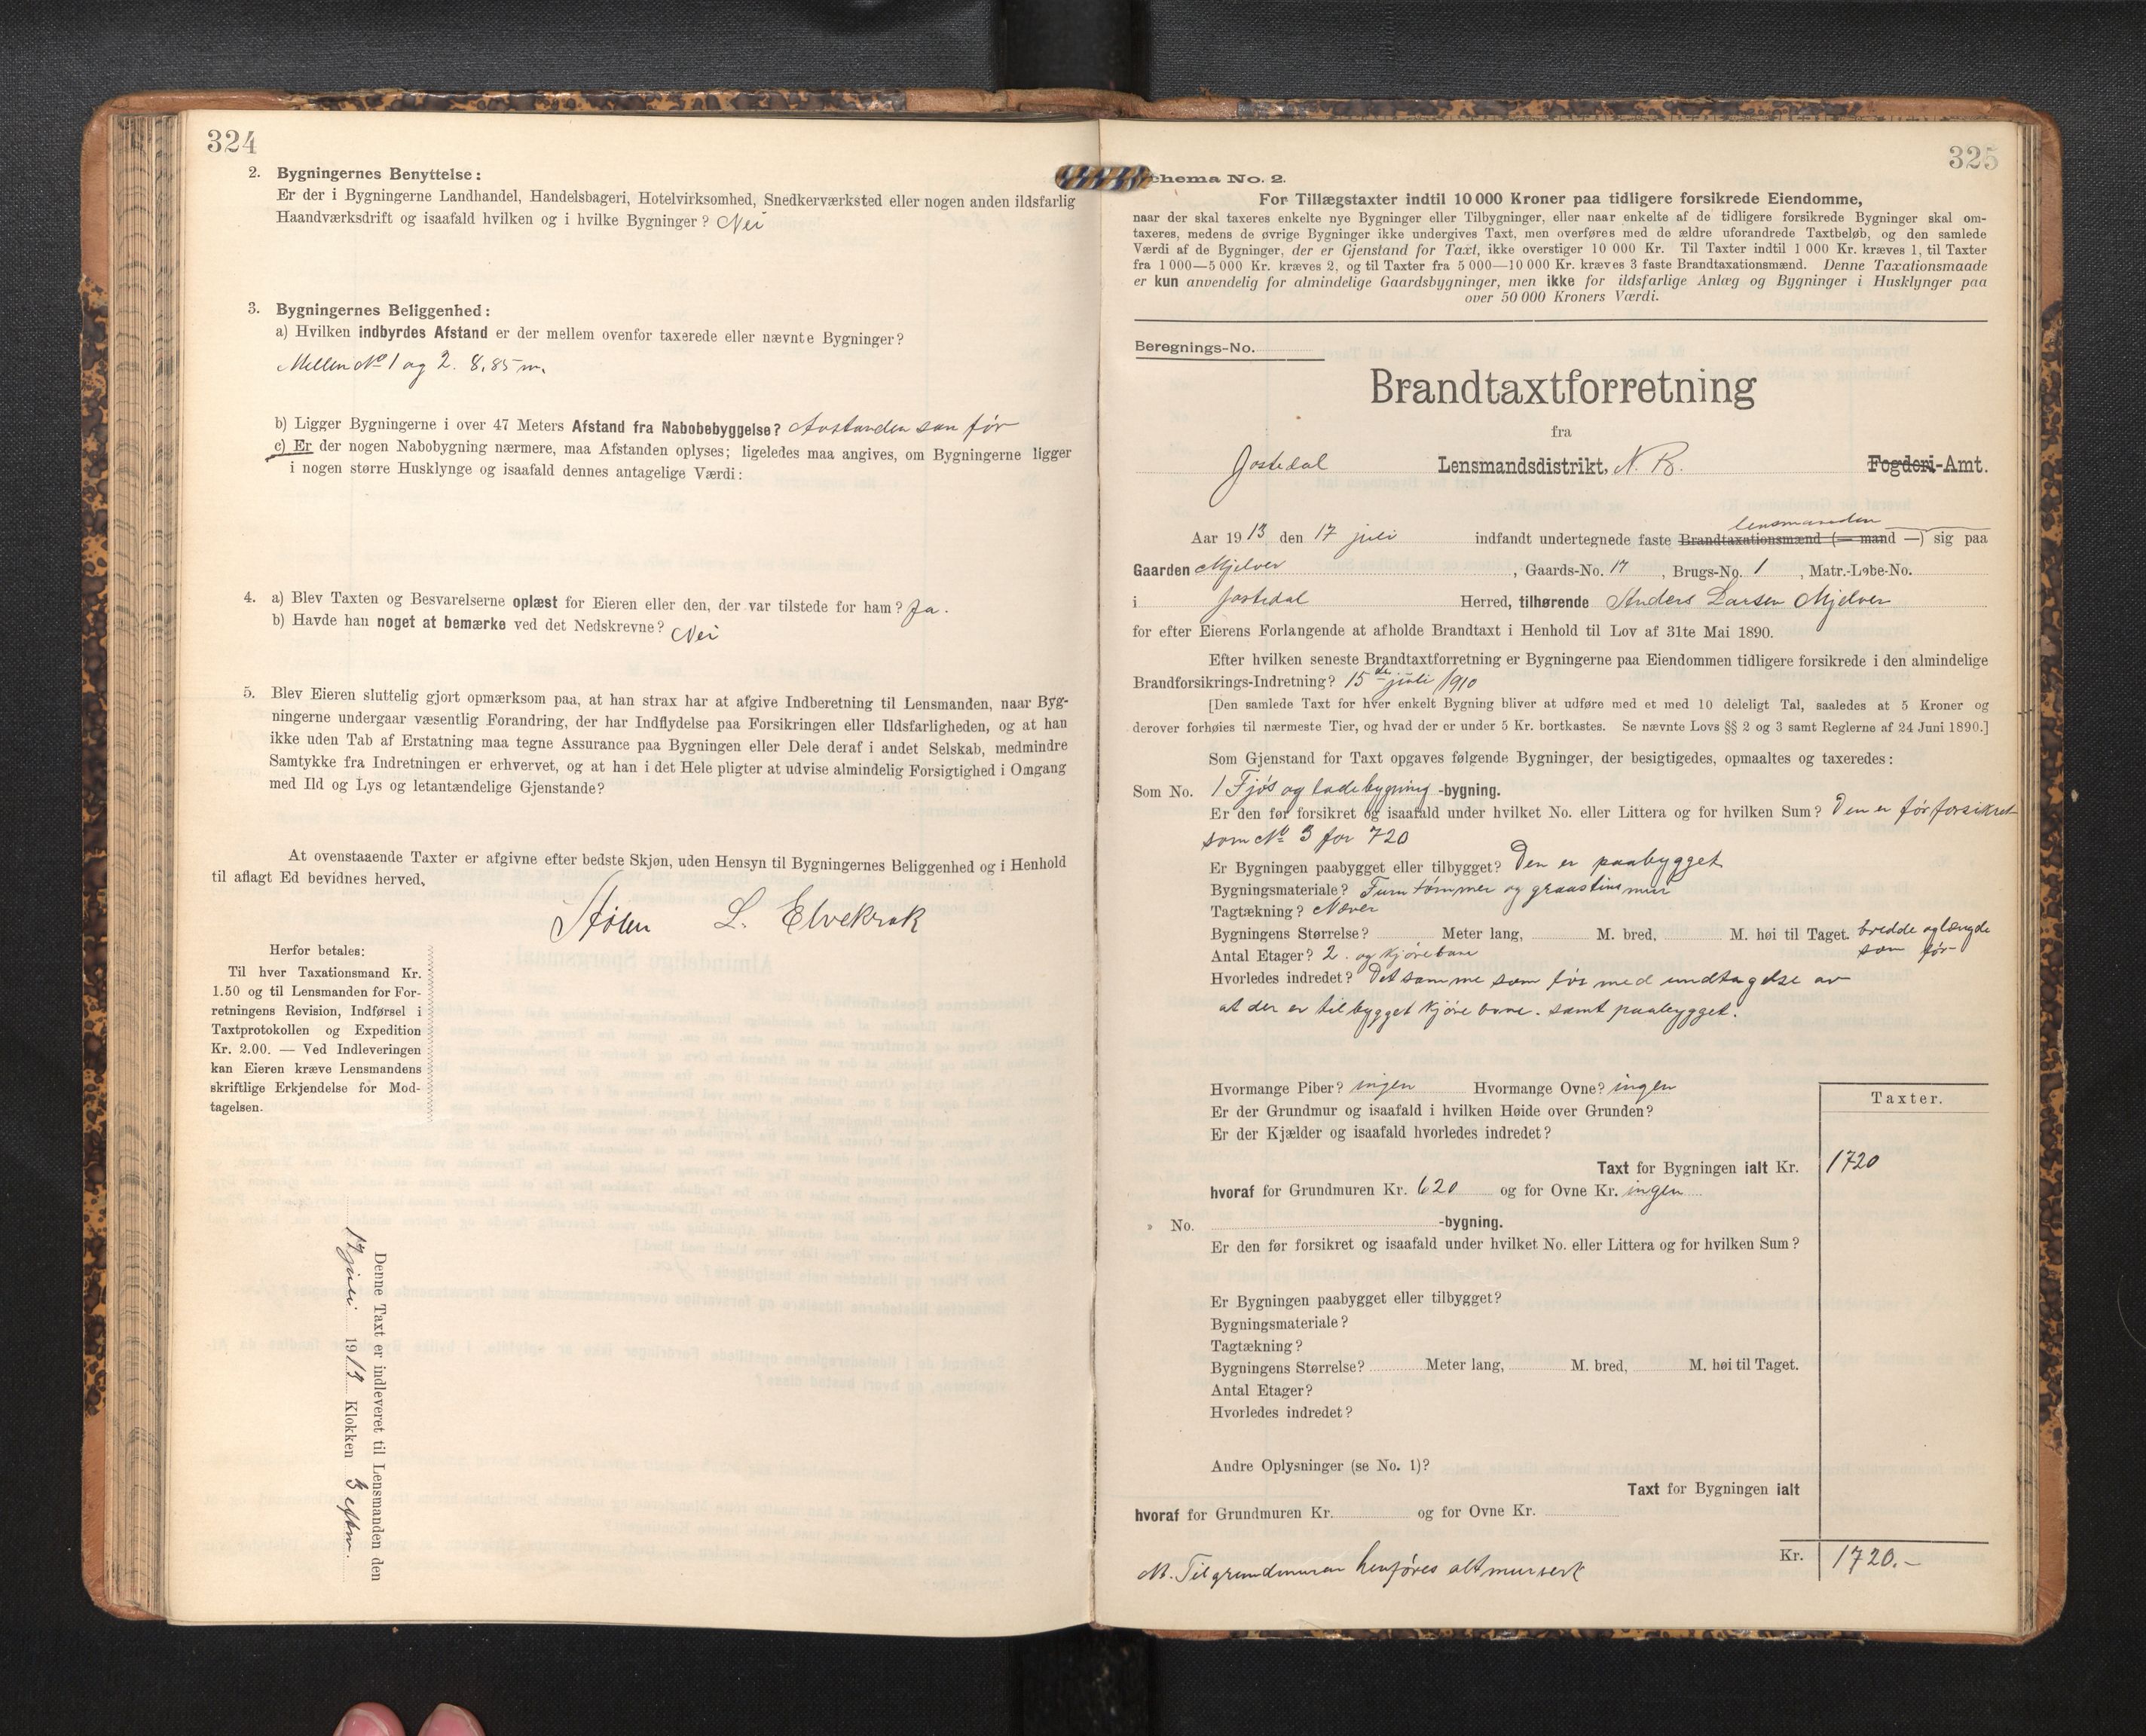 324
2. Bygningernes Benyttelse:
Er der i Bygningerne Landhandel, Handelsbageri, Hotelvirksomhed, Snedkerværksted eller nogen anden ildsfarlig
Haandværksdrift og isaafald hvilken og i hvilke Bygninger? Nei
3. Bygningernes Beliggenhed:
a) Hvilken indbyrdes Afstand er der mellem ovenfor taxerede eller nævnte Bygninger?
Mellem No 1 og 2. 8,85 m.
b) Ligger Bygningerne i over 47 Meters Afstand fra Nabobebyggelse? Avstanden som før
c) Er der nogen Nabobygning nærmere, maa Afstanden oplyses; ligeledes maa angives, om Bygningerne ligger
i nogen større Husklynge og isaafald dennes antagelige Værdi:
4. a) Blev Taxten og Besvarelserne oplæst for Eieren eller den, der var tilstede for ham? Ja.
b) Havde han noget at bemærke ved det Nedskrevne? Nei
5. Blev Eieren sluttelig gjort opmærksom paa, at han strax har at afgive Indberetning til Lensmanden, naar Byg-
ningerne undergaar væsentlig Forandring, der har Indflydelse paa Forsikringen eller Ildsfarligheden, og at han
ikke uden Tab af Erstatning maa tegne Assurance paa Bygningen eller Dele deraf i andet Selskab, medmindre
Samtykke fra Indretningen er erhvervet, og at han i det Hele pligter at udvise almindelig Forsigtighed i Omgang
med Ild og Lys og letantændelige Gjenstande?
At ovenstaaende Taxter er afgivne efter bedste Skjøn, uden Hensyn til Bygningernes Beliggenhed og i Henhold
til aflagt Ed bevidnes herved,
Stølen L. Elvekrok
Herfor betales:
Til hver Taxationsmand Kr.
1.50 og til Lensmanden for For-
retningens Revision, Indførsel i
Taxtprotokollen og Expedition
Kr. 2.00. — Ved Indleveringen
kan Eieren kræve Lensmandens
skriftlige Erkjendelse for Mod-
tagelsen.
Denne Taxt er indleveret til Lensmanden den
17 juni 1913 Klokken 3 eftm.
325
Schema No. 2.
For Tillægstaxter indtil 10 000 Kroner paa tidligere forsikrede Eiendomme,
naar der skal taxeres enkelte nye Bygninger eller Tilbygninger, eller naar enkelte af de tidligere forsikrede Bygninger skal om-
taxeres, medens de øvrige Bygninger ikke undergives Taxt, men overføres med de ældre uforandrede Taxtbeløb, og den samlede
Værdi af de Bygninger, der er Gjenstand for Taxt, ikke overstiger 10 000 Kr. Til Taxter indtil 1 000 Kr. kræves 1, til Taxter
fra 1 000—5 000 Kr. kræves 2, og til Taxter fra 5 000—10 000 Kr. kræves 3 faste Brandtaxationsmænd. Denne Taxationsmaade
er kun anvendelig for almindelige Gaardsbygninger, men ikke for ildsfarlige Anlæg og Bygninger i Husklynger paa
over 50 000 Kroners Værdi.
Beregnings-No.
Brandtaxtforretning
fra
Jostedal Lensmandsdistrikt, N. B. Fogderi-Amt.
lensmanden
Aar 1913 den 17 juli indfandt undertegnede faste Brandtaxationsmænd (— mand —) sig paa
Gaarden Mjelver, Gaards-No. 17, Brugs-No. 1, Matr.-Løbe-No.
i Jostedal Herred, tilhørende Anders Larsen Mjelver
for efter Eierens Forlangende at afholde Brandtaxt i Henhold til Lov af 31te Mai 1890.
Efter hvilken seneste Brandtaxtforretning er Bygningerne paa Eiendommen tidligere forsikrede i den almindelige
Brandforsikrings-Indretning? 15de juli 1910
[Den samlede Taxt for hver enkelt Bygning bliver at udføre med et med 10 deleligt Tal, saaledes at 5 Kroner og
derover forhøies til nærmeste Tier, og hvad der er under 5 Kr. bortkastes. Se nævnte Lovs §§ 2 og 3 samt Reglerne af 24 Juni 1890.]
Som Gjenstand for Taxt opgaves følgende Bygninger, der besigtigedes, opmaaltes og taxeredes:
Som No. 1 Fjøs og ladebygning -bygning.
Er den før forsikret og isaafald under hvilket No. eller Littera og for hvilken Sum? Den er før forsikret
som No 3 for 720
Er Bygningen paabygget eller tilbygget? Den er paabygget
Bygningsmateriale? Furutømmer og graastens mur
Tagtækning? Næver
Bygningens Størrelse? Meter lang, M. bred, M. høi til Taget. bredde og længde
som før
Antal Etager? 2. og kjørebane
Hvorledes indredet? Det samme som før med undtagelse av
at der er tilbygget kjørebane. samt paabygget.
Hvormange Piber? ingen Hvormange Ovne? ingen
Er der Grundmur og isaafald i hvilken Høide over Grunden?
Er der Kjælder og isaafald hvorledes indredet?
Taxter.
Taxt for Bygningen ialt Kr. 1720
hvoraf for Grundmuren Kr. 620 og for Ovne Kr. ingen
» No. -bygning.
Er den før forsikret og isaafald under hvilket No. eller Littera og for hvilken Sum?
Er Bygningen paabygget eller tilbygget?
Bygningsmateriale?
Tagtækning?
Bygningens Størrelse? Meter lang, M. bred, M. høi til Taget.
Antal Etager?
Hvorledes indredet?
Andre Oplysninger (se No. 1)?
Taxt for Bygningen ialt
hvoraf for Grundmuren Kr. og for Ovne Kr.
Kr. 1720.-
Til grundmuren henføres alt murverk